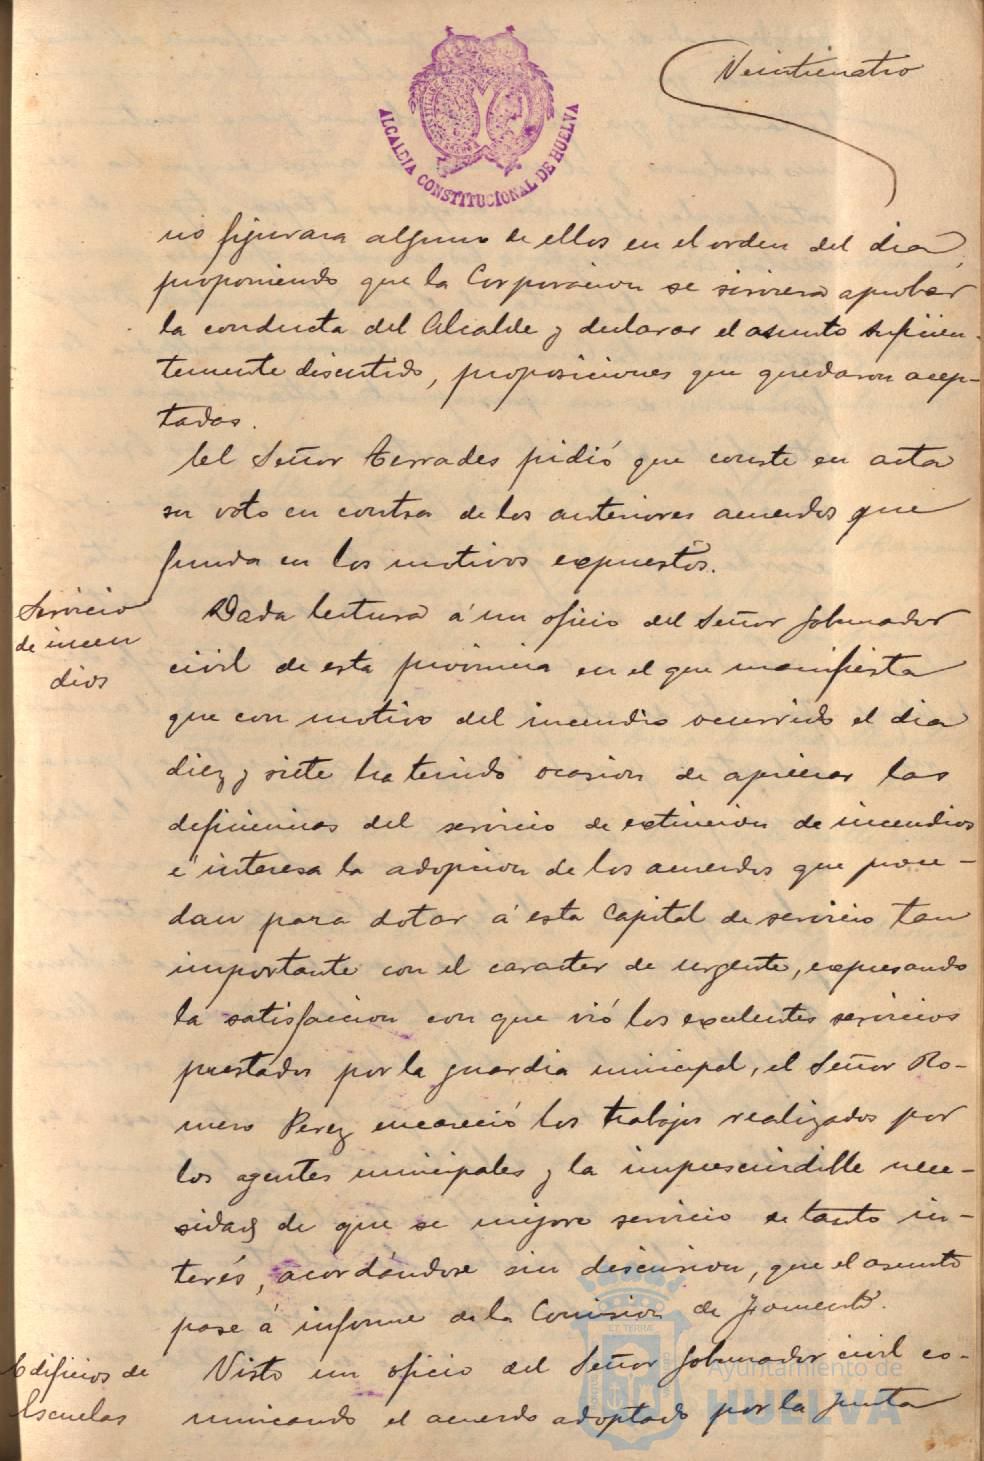 Veinticuatro
ALCALDIA CONSTITUCIONAL DE HUELVA
no figurara alguno de ellos en el orden del dia,
proponiendo que la Corporacion se sirviera aprobar
la conducta del Alcalde y declarar el asunto suficien-
temente discutido, proposiciones que quedaron acep-
tadas.
El Señor Terrades pidió que conste en acta
su voto en contra de los anteriores acuerdos que
funda en los motivos expuestos.
Servicio
de incen
dios
Dada lectura á un oficio del Señor Gobernador
civil de esta provincia en el que manifiesta
que con motivo del incendio ocurrido el dia
diez y siete ha tenido ocasion de apreciar las
deficiencias del servicio de extincion de incendios
é interesa la adopcion de los acuerdos que proce-
dan para dotar á esta Capital de servicio tan
importante con el caracter de urgente, expresando
la satisfaccion con que vió los excelentes servicios
prestados por la guardia municipal, el Señor Ro-
mero Perez encareció los trabajos realizados por
los agentes municipales y la imprescindible nece-
sidad de que se mejore servicio de tanto in-
terés, acordándose sin discusion, que el asunto
pase á informe de la Comision de Fomento.
Edificios de
Escuelas
Visto un oficio del Señor Gobernador civil co-
municando el acuerdo adoptado por la Junta
Ayuntamiento de
HUELVA